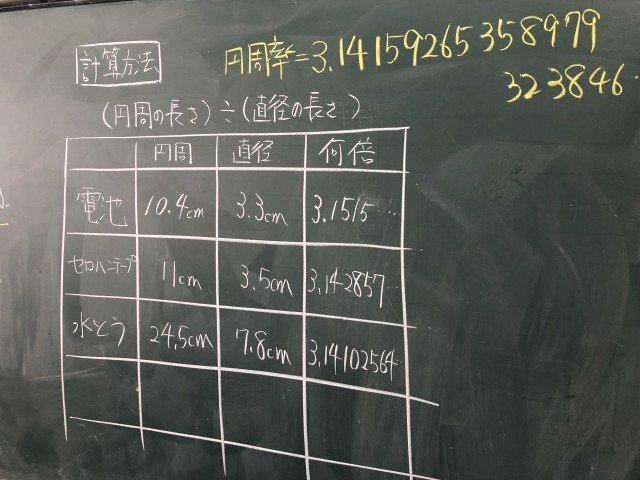 計算方法
円周率=3.14159265358979
323846…
(円周の長さ)÷(直径の長さ)
円周 直径 何倍
電池 10.4cm 3.3cm 3.1515…
セロハンテープ 11cm 3.5cm 3.142857…
水とう 24.5cm 7.8cm 3.14102564…